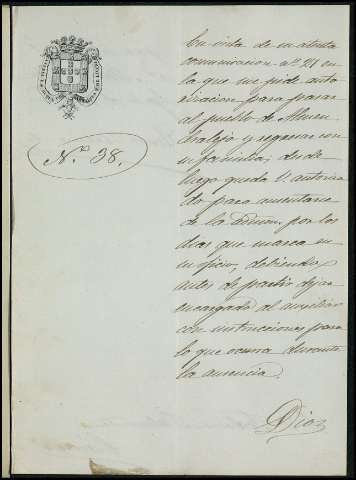 Nº 38.
En vista de su atenta
comunicacion nº 21 en
la que me pide auto-
rizacion para pasar
al pueblo de Almen-
dralejo y regresar con
su familia; desde
luego queda V. autoriza-
do para ausentarse
de la por los
dias que marca en
su oficio, debiendo
antes de partir dejar
encargado al auxiliar
con instrucciones para
lo que ocurra durante
la ausencia.
Dios